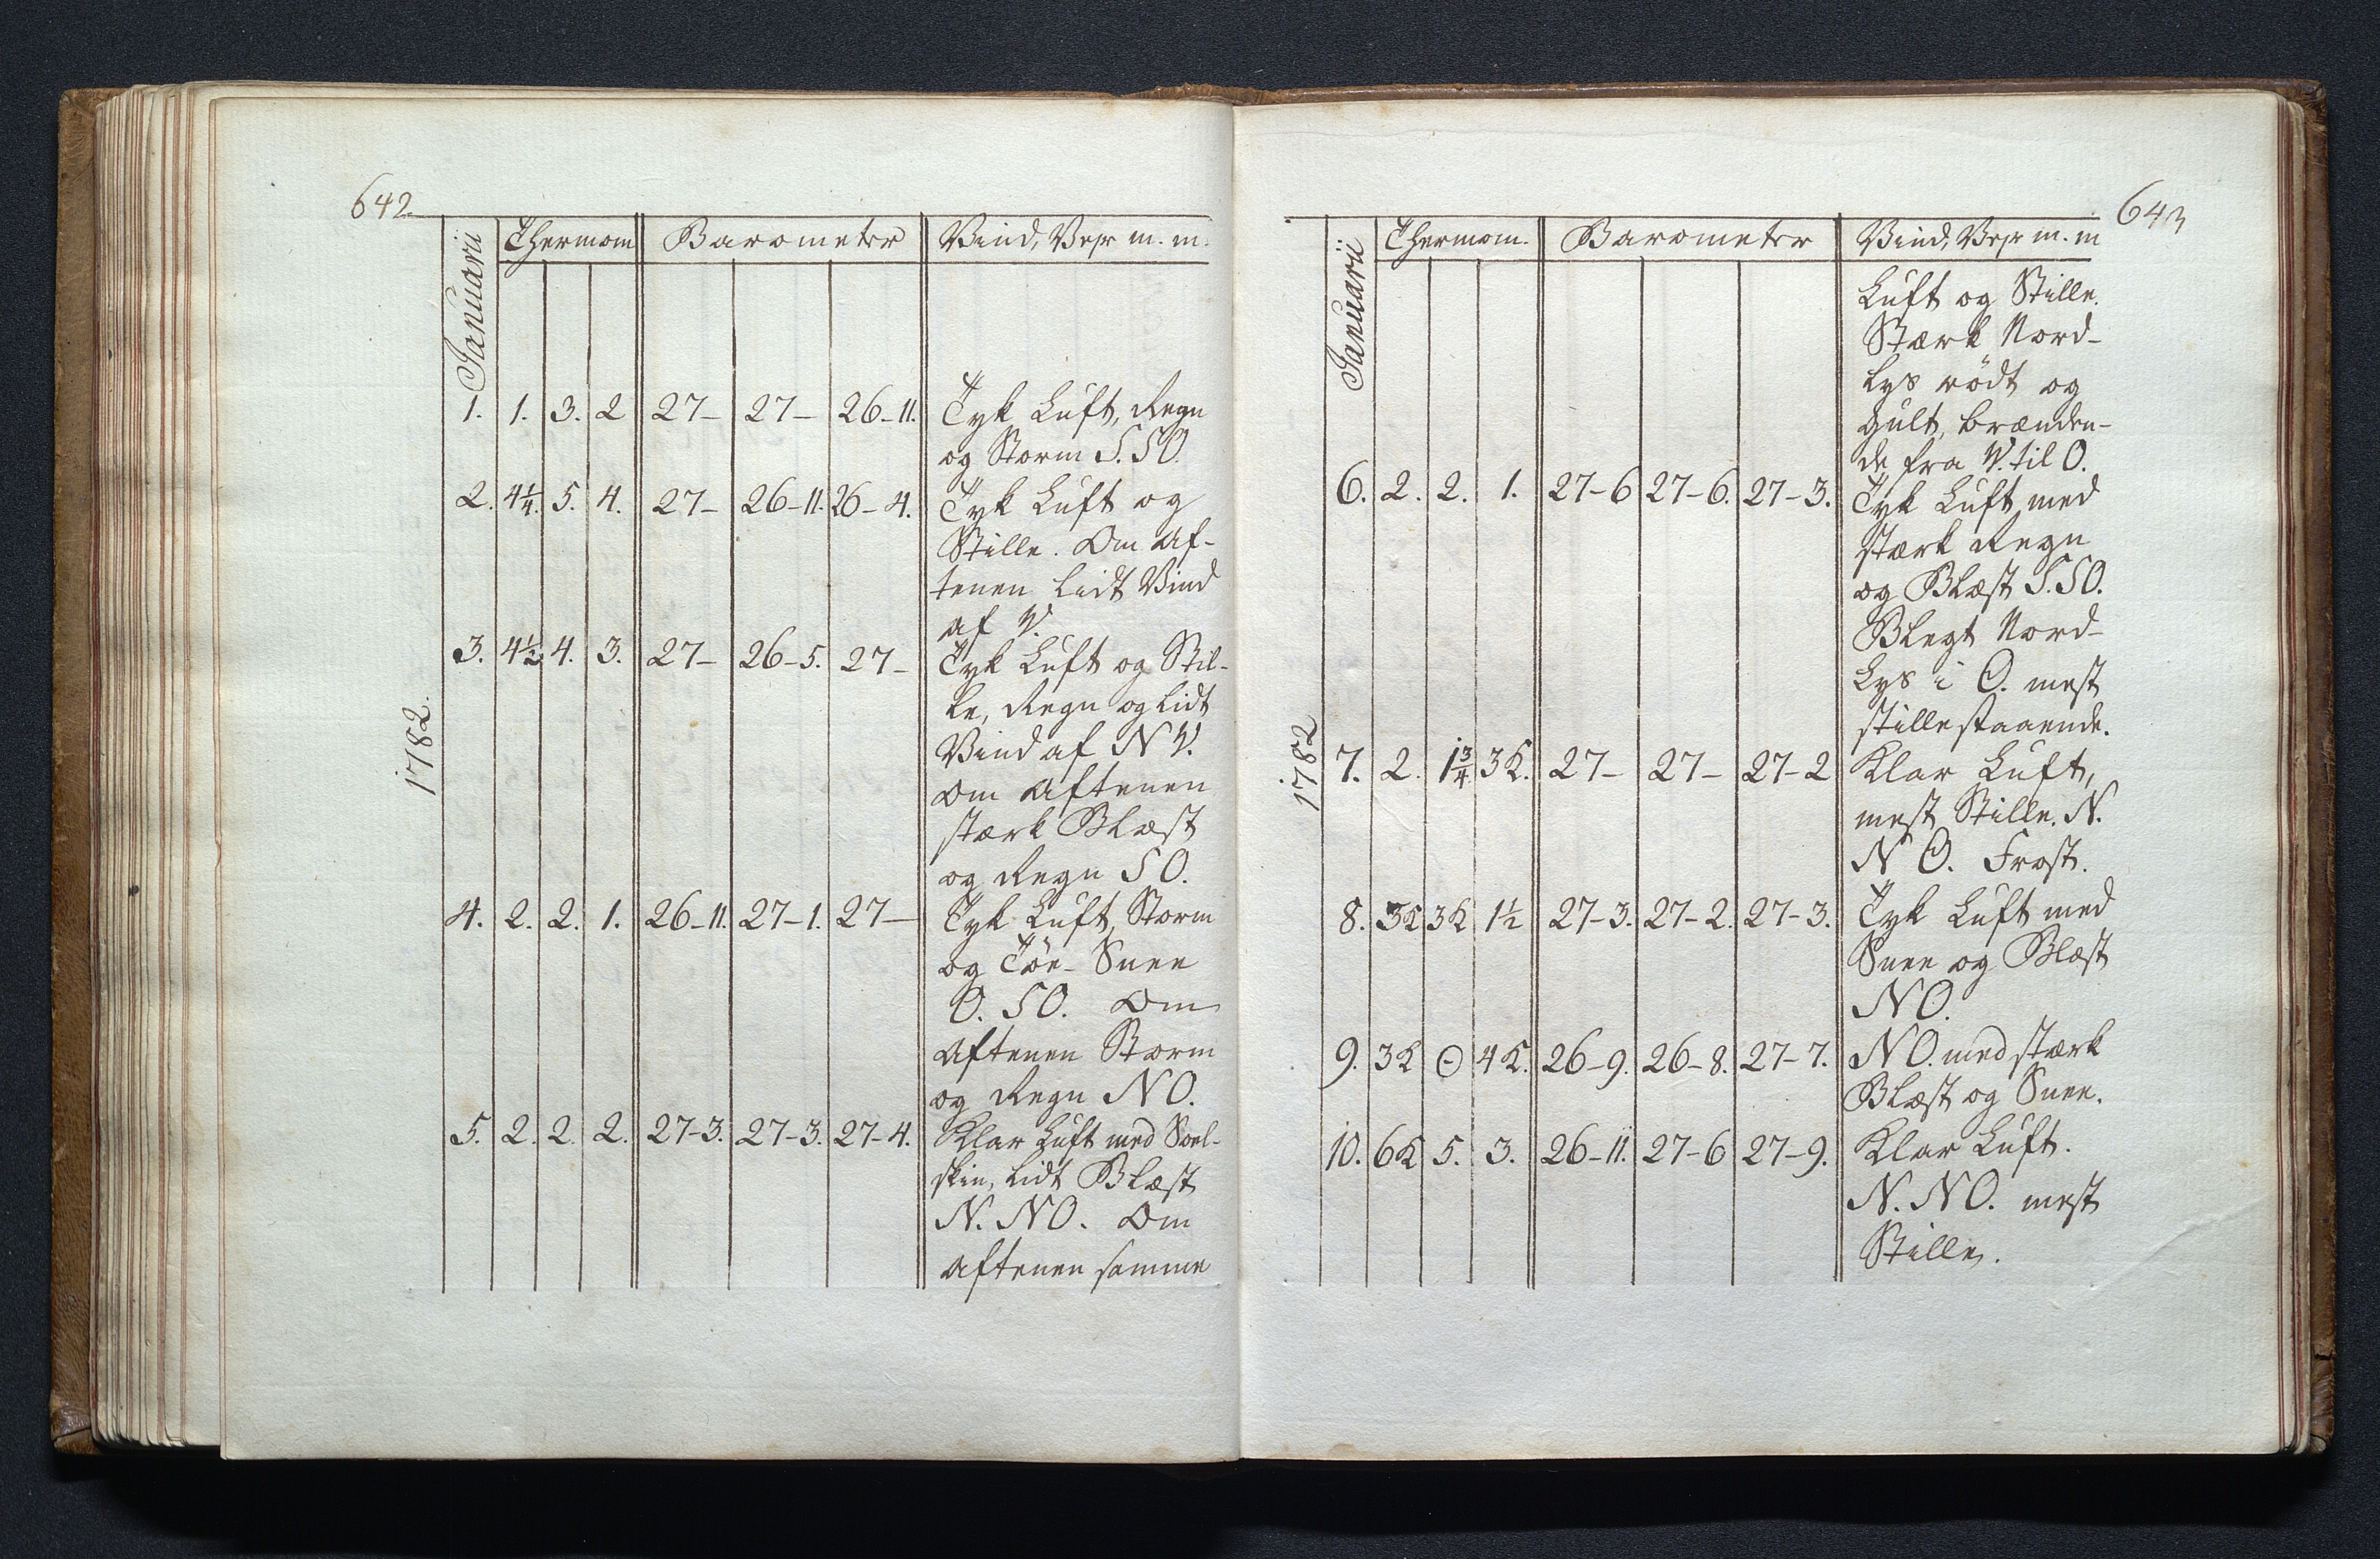 642.
Januarii Thermom Barometer Vind, Vejr m. m.
1. 1. 3. 2 27- 27- 26-11. Tyk Luft, Regn
og Storm S. SO.
2. 4¼. 5. 4. 27- 26-11. 26-4. Tyk Luft og
Stille. Om Af-
tenen lidt Vind
af V.
3. 4½ 4. 3. 27- 26-5. 27- Tyk Luft og Stil-
le, Regn og lidt
Vind af NV.
1782.
Om Aftenen
stærk Blæst
og Regn SO.
4. 2. 2. 1. 26-11. 27-1. 27- Tyk Luft, Storm
og Töe-Snee
O. SO. Om
Aftenen Storm
og Regn NO.
5. 2. 2. 2. 27-3. 27-3. 27-4. Klar Luft med Soel-
skin, lidt Blæst
N. NO. Om
Aftenen samme
643
Januarii Thermom. Barometer Vind, Vejr m. m
Luft og Stille.
Stærk Nord-
lys rödt og
Gult, brænden-
de fra V. til O.
6. 2. 2. 1. 27-6 27-6. 27-3. Tyk Luft med
stærk Regn
og Blæst S. SO.
Blegt Nord-
Lys i O. mest
stillestaaende.
1782
7. 2. 1¾ 3K. 27- 27- 27-2 Klar Luft,
mest Stille. N.
NO. Frost.
8. 3K 3K 1½ 27-3. 27-2. 27-3. Tyk Luft med
Snee og Blæst
NO.
9. 3K 0 4K. 26-9. 26-8. 27-7. NO. med stærk
Blæst og Snee.
10. 6K 5. 3. 26-11. 27-6 27-9. Klar Luft.
N. NO. mest
Stille.